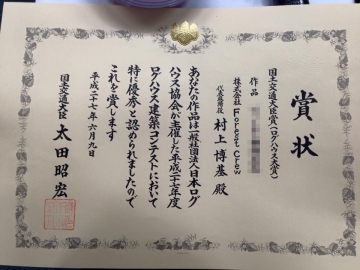 賞状
国土交通大臣賞(ログハウス大賞)
作品
株式会社 Forest Crew
代表取締役 村上博基 殿
あなたの作品は一般社団法人日本ログ
ハウス協会が主催した平成二十七年度
ログハウス建築コンテストにおいて
特に優秀と認められましたので
これを賞します
平成二十七年六月九日
国土交通大臣 太田昭宏